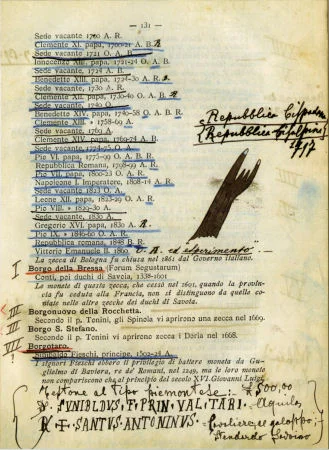 — 131 —
Sede vacante 1700 A. R.
Clemente XI, papa, 1700-21 A. B. R
Sede vacante 1721 O. A. B.
Innocenzo XIII, papa, 1721-24 O. A. B.
Sede vacante, 1724 A. B.
Benedetto XIII, papa, 1724-30 A. R.
Sede vacante, 1730 A. R.
Clemente XII, papa, 1730-40 O. A. B. R.
Sede vacante, 1740 O.
Benedetto XIV, papa, 1740-58 O. A. B. R.
Clemente XIII » 1758-69 A.
Sede vacante, 1769 A.
Clemente XIV, papa, 1769-74 A. B.
Sede vacante, 1774-75 O. A.
Pio VI, papa, 1775-99 O. A. B. R.
Repubblica Romana, 1798-99 A. R.
Pio VII, papa, 1800-23 O. A. R.
Napoleone I, Imperatore, 1808-14 A. R.
Sede vacante 1823 O. A.
Leone XII, papa, 1823-29 O. A. R.
Pio VIII, » 1829-30 A.
Sede vacante, 1830 A.
Gregorio XVI, papa, 1830 A. R.
Pio IX, » 1846-60 O. A. R.
Repubblica romana, 1848 B. R.
Vittorio Emanuele II. 1860 O. A. ed esperimento"
Repubblica Cispadana
Repubblica Cisalpina
1797
La zecca di Bologna fu chiusa nel 1861 dal Governo Italiano.
I
Borgo della Bressa (Forum Segustarum)
Conti, poi duchi di Savoia, 1338-1601
Le monete di questa zecca, che cessò nel 1601, quando la provin-
cia fu ceduta alla Francia, non si distinguono da quelle co-
niate nelle altre zecche dei duchi di Savoia.
Borgonuovo della Rocchetta.
Secondo il p. Tonini, gli Spinola vi aprirono una zecca nel 1669.
Borgo S. Stefano.
Secondo il p. Tonini, vi aprirono zecca i Doria nel 1668.
Borgotaro.
Sinibaldo Fieschi, principe, 1502-28 A.
I signori Fieschi ebbero il privilegio di battere moneta da Gu-
glielmo di Baviera, re de' Romani, nel 1249, ma le loro monete
non compariscono che al principio del secolo XVI. Giovanni Luigi
Testone al Tipo piemontese: £ 500,00
D. SUNIBLDUS. F. PRIN. VAL. TARI. Aquila
R. SANTUS. ANTONINUS. Cavaliere al galoppo: